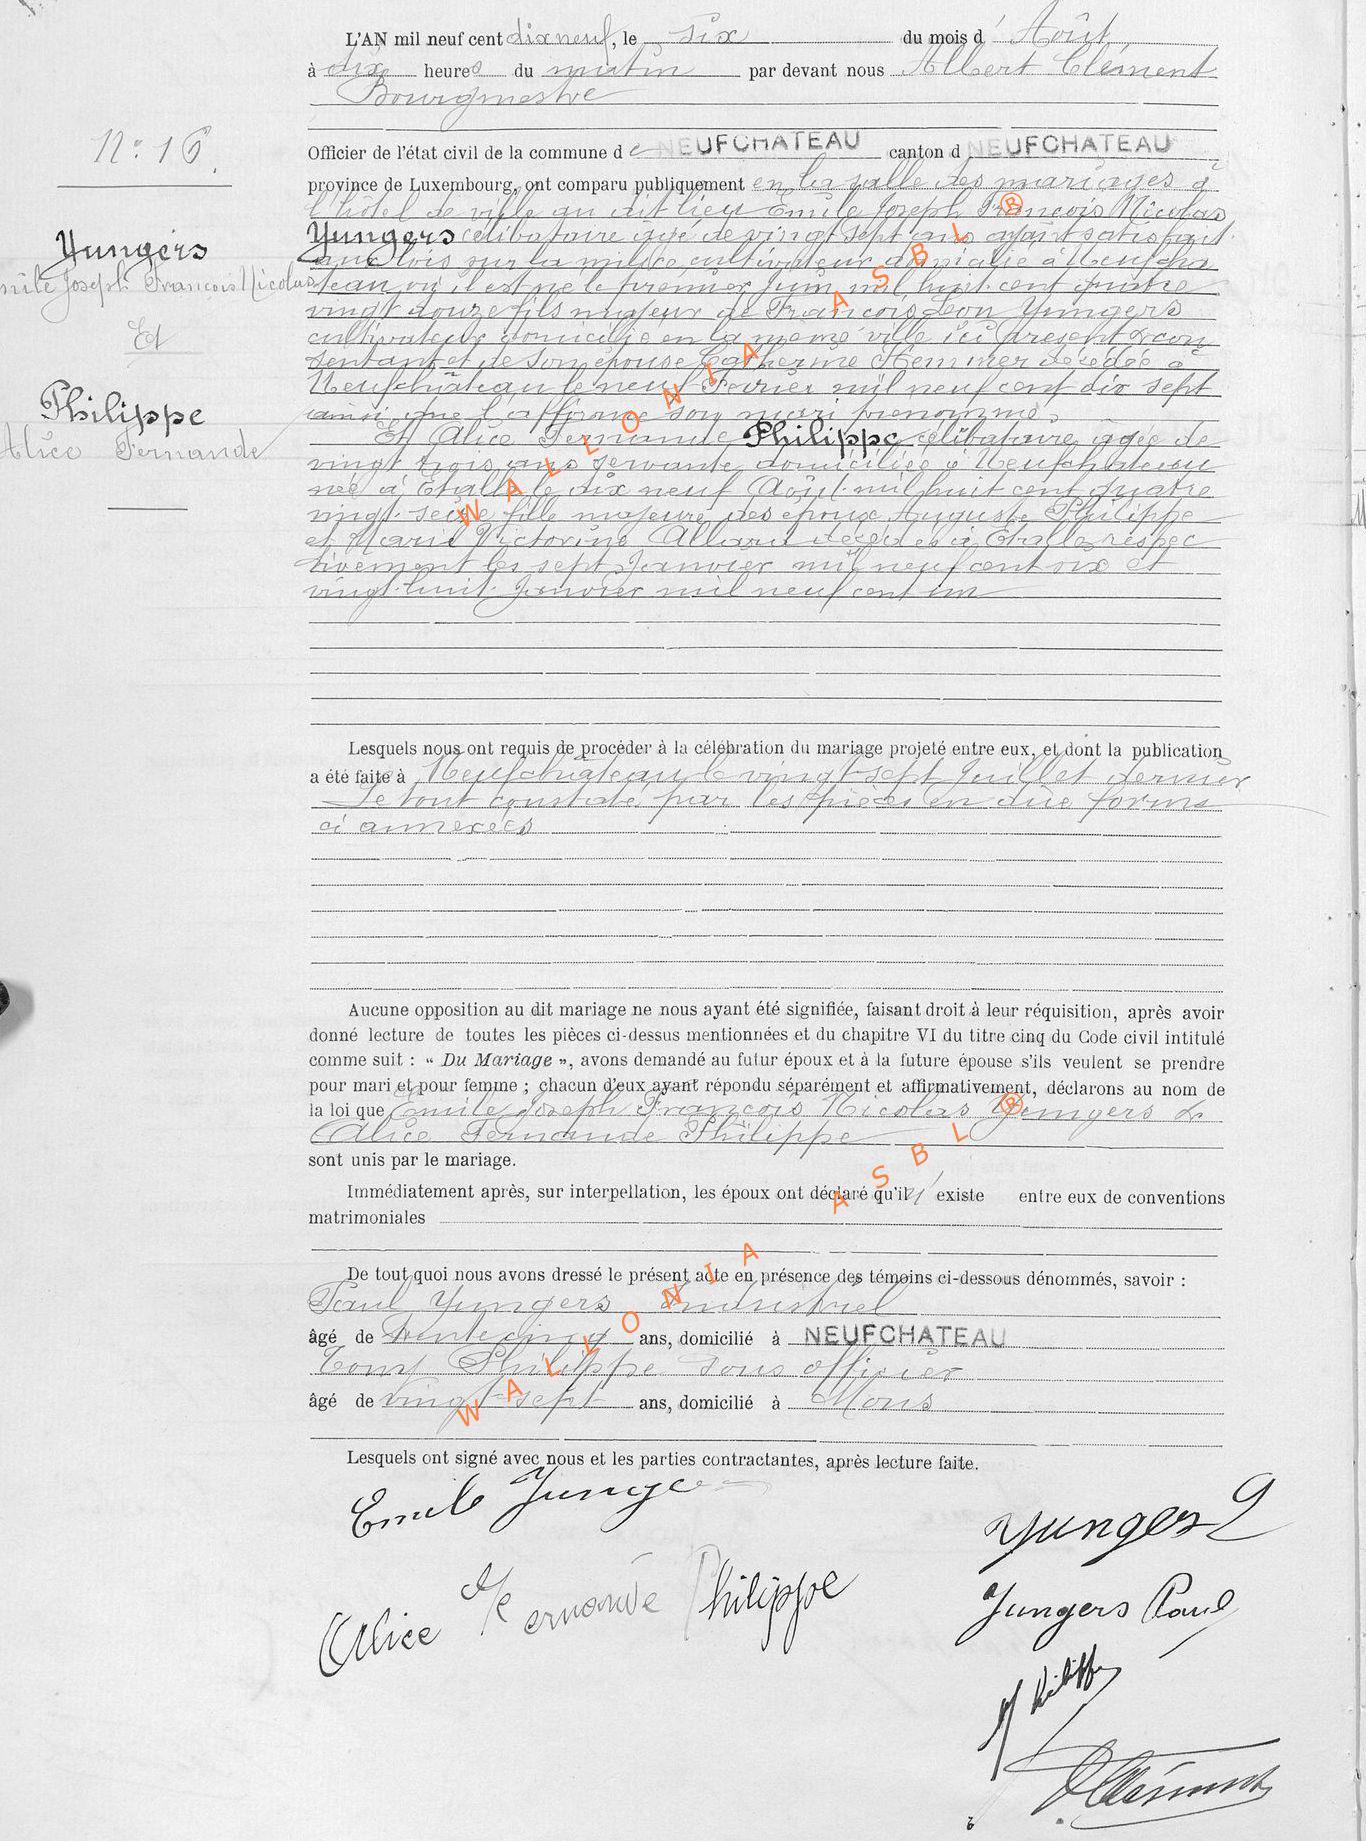 L'AN mil neuf cent dix neuf, le six du mois d' Août
à dix heures du matin par devant nous Albert Clément
Bourgmestre
Officier de l'état civil de la commune de NEUFCHATEAU canton d NEUFCHATEAU
province de Luxembourg, ont comparu publiquement en la salle des mariages à
l'hôtel de ville au dit lieu Emile Joseph François Nicolas
Yungers célibataire âgé de vingt sept ans ayant satisfait
aux lois sur la milice cultivateur domicilié à Neufchâ
teau où il est né le premier Juin mil huit cent quatre
vingt douze fils majeur de François Léon Yungers
cultivateur domicilié en la même ville ici présent & con
sentant et de son épouse Catherine Hemmer décédée à
Neufchâteau le neuf Février mil neuf cent dix sept
ainsi que l'affirme son mari prénommé.
Et Alice Fernande Philippe célibataire âgée de
vingt trois ans servante domiciliée à Neufchâteau
née à Etalle le dix neuf Août mil huit cent quatre
vingt seize fille majeure des époux Auguste Philippe
et Marie Victorine Allard décédés à Etalle respec
tivement les sept Janvier mil neuf cent dix et
vingt huit Janvier mil neuf cent un
N° 16.
Yungers
Emile Joseph François Nicolas
Et
Philippe
Alice Fernande
Lesquels nous ont requis de procéder à la célébration du mariage projeté entre eux, et dont la publication
a été faite à Neufchâteau le vingt sept Juillet dernier
Le tout constaté par les pièces en due forme
ci annexées
Aucune opposition au dit mariage ne nous ayant été signifiée, faisant droit à leur réquisition, après avoir
donné lecture de toutes les pièces ci-dessus mentionnées et du chapitre VI du titre cinq du Code civil intitulé
comme suit : « Du Mariage », avons demandé au futur époux et à la future épouse s'ils veulent se prendre
pour mari et pour femme ; chacun d'eux ayant répondu séparément et affirmativement, déclarons au nom de
la loi que Emile Joseph François Nicolas Yungers &
Alice Fernande Philippe
sont unis par le mariage.
Immédiatement après, sur interpellation, les époux ont déclaré qu'il n'existe entre eux de conventions
matrimoniales
De tout quoi nous avons dressé le présent acte en présence des témoins ci-dessous dénommés, savoir :
Paul Yungers industriel
âgé de trente cinq ans, domicilié à NEUFCHATEAU
Tony Philippe sous officier
âgé de vingt-sept ans, domicilié à Mons
Lesquels ont signé avec nous et les parties contractantes, après lecture faite.
Emile Junge
Yungers L
Alice Fernande Philippe
Jungers Paul
Philippe
A Clément
WALLONIA ASBL ®
WALLONIA ASBL ®